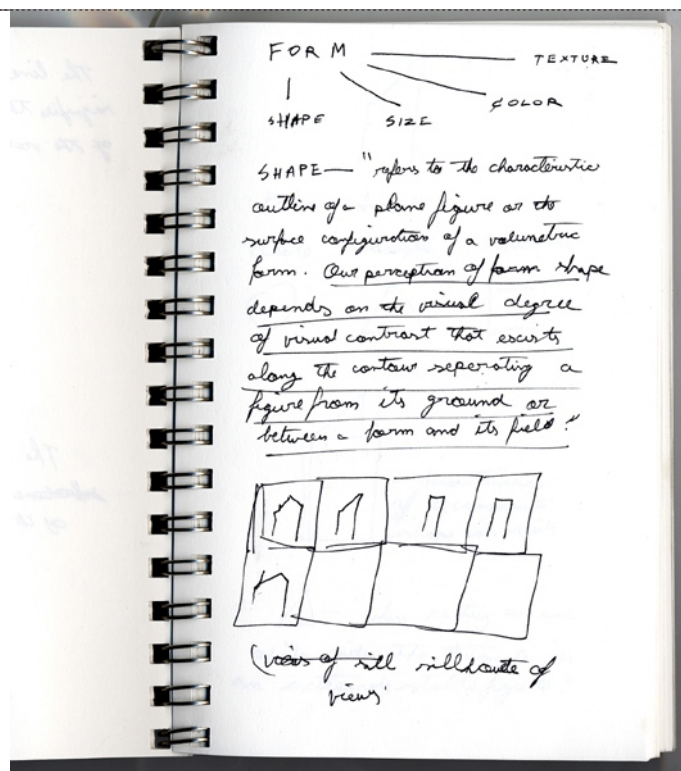 FORM
TEXTURE
COLOR
SHAPE
SIZE
SHAPE— "refers to the characteristic
outline of a plane figure or the
surface configuration of a volumetric
form. Our perception of form shape
depends on the visual degree
of visual contrast that exists
along the contour seperating a
figure from its ground or
between a form and its field."
(views of sill sillhoute of
views